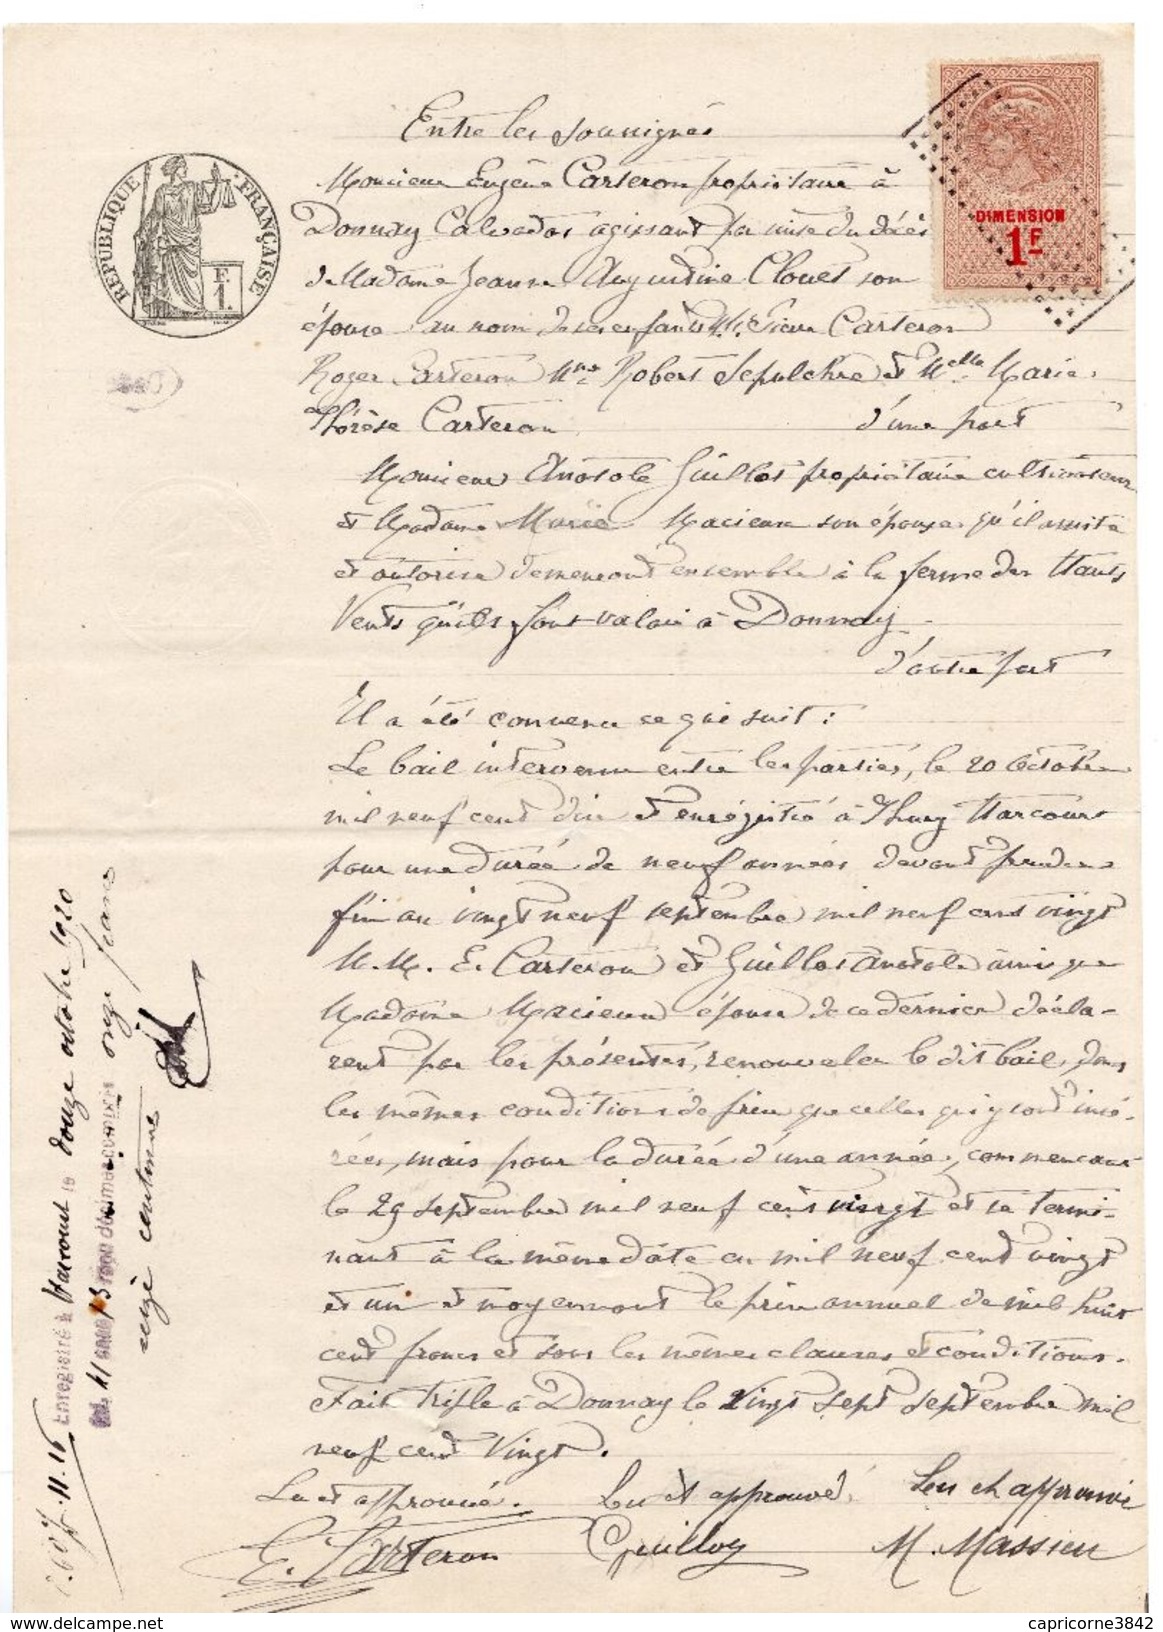 Entre les soussignés
Monsieur Eugène Carteron propriétaire à
Donnay Calvados agissant par suite du décès
de Madame Jeanne Augustine Clouet son
épouse au nom de ses enfants M. Pierre Carteron
Roger Carteron Mme Robert Sepulchre et Melle Marie
Thérèse Carteron d'une part
Monsieur Anatole Guillot propriétaire cultivateur
et Madame Marie Macieu son épouse qu'il assiste
et autorise demeurant ensemble à la ferme des Hauts
Vents qu'ils font valoir à Donnay
d'autre part
Il a été convenu ce qui suit :
Le bail intervenu entre les parties, le 20 Octobre
mil neuf cent dix et enrégistré à Thury Harcourt
pour une durée de neuf années devant prendre
fin au vingt neuf septembre mil neuf cent vingt
M.M. E. Carteron et Guillot Anatole ainsi que
Madame Macieu épouse de ce dernier décla-
rent par les présentes, renouveler le dit bail, dans
les mêmes conditions de prix que celles qui y sont insé-
rées, mais pour la durée d'une année, commencant
le 29 septembre mil neuf cent vingt et se termi-
nant à la même date en mil neuf cent vingt
et un et moyennant le prix annuel de mil huit
cent francs et sous les mêmes clauses et conditions.
Fait triple à Donnay le vingt sept septembre mil
neuf cent vingt.
Lu et approuvé. Lu et approuvé. Lu et approuvé
E. Carteron Guillot M. Massieu
RÉPUBLIQUE FRANÇAISE
F
1.
DIMENSION
1F
Enregistré à Harcourt le douze octobre 1920
onze francs
seize centimes
11.16
www.delcampe.net
capricorne3842